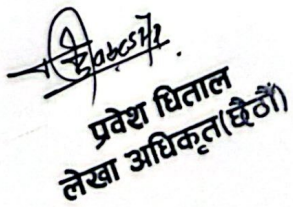 प्रवेश घिताल
लेखा अधिकृत(छैठौं)